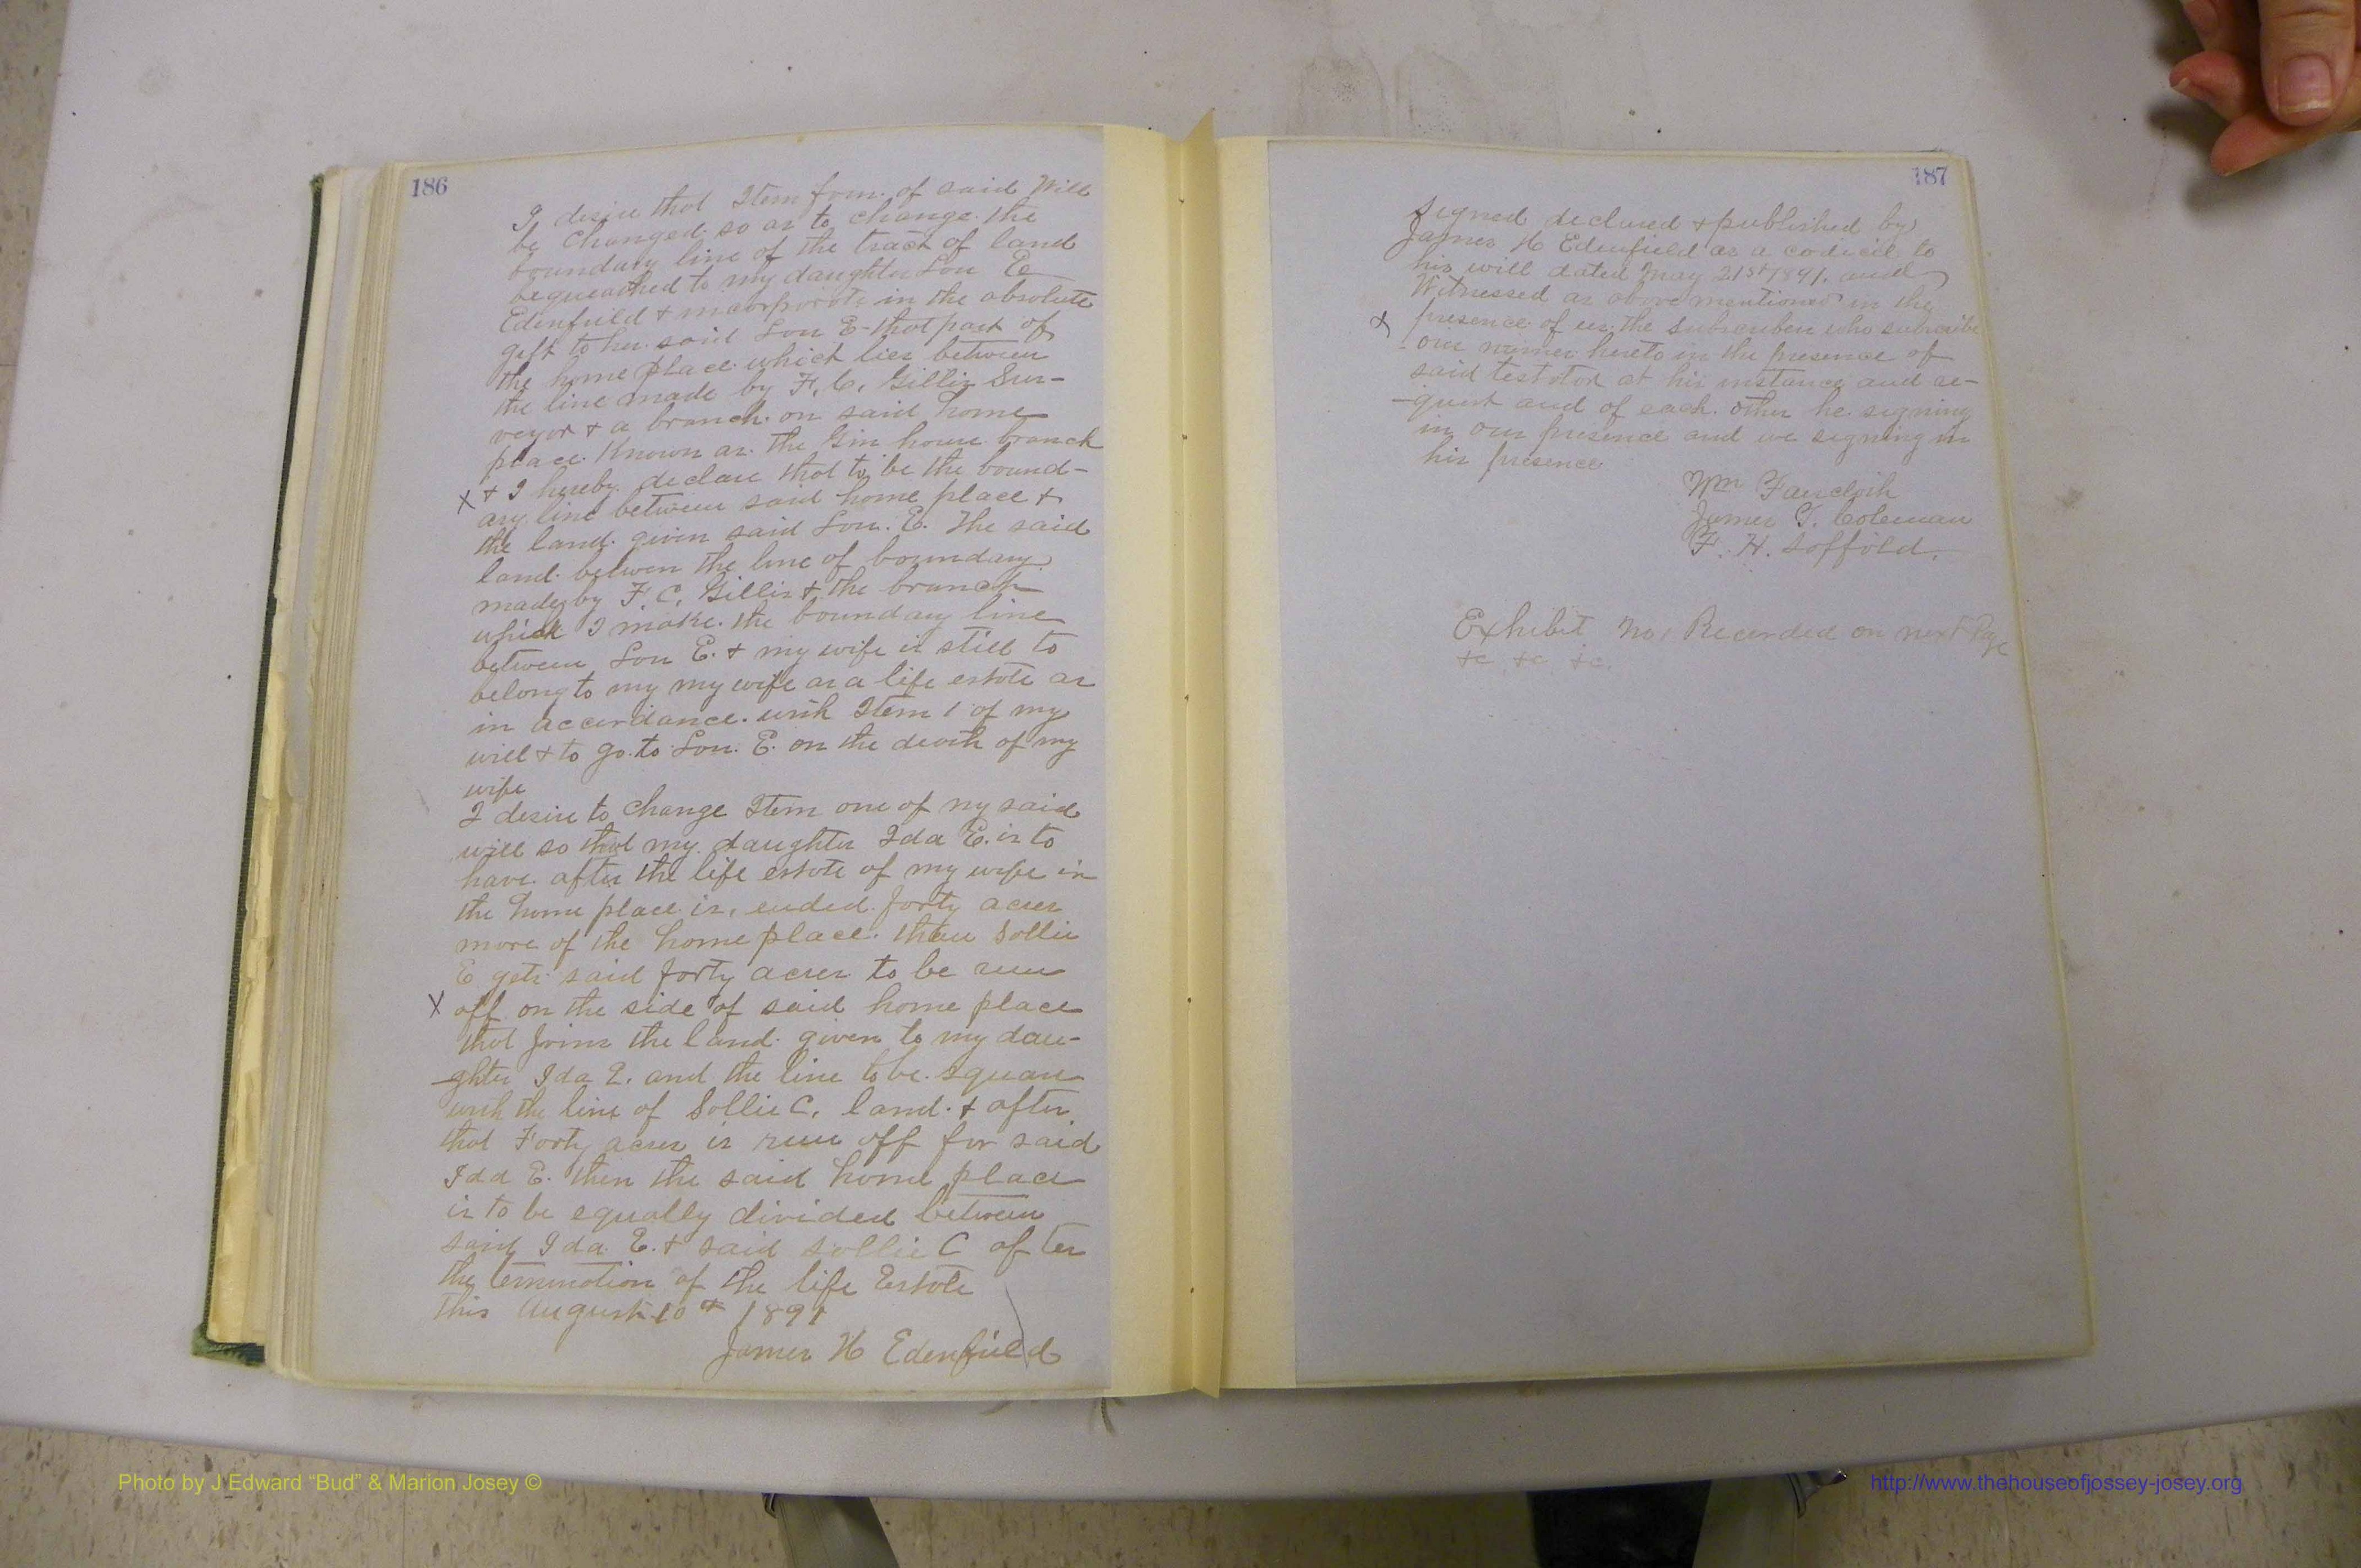 186
I desire that Item four. of said Will
be Changed so as to change. the
boundary line of the tract of land
bequeathed to my daughter Lou E
Edenfield & incorporate in the absolute
gift to her said Lou E- that part of
the home place which lies between
the line made by F. C. Gillis Sur-
veyor & a branch. on said home
place. Known as. the Gin house branch
X & I hereby. declare that to be the bound-
ary line between said home place &
the land. given said Lou. E. The said
land. betwen the line of boundary
made by F. C. Gillis & the branch
which I make. the boundary line
between Lou E. & my wife is still to
belong to my my wife as a life estate as
in accordance. with Item 1 of my
will & to go. to Lou. E. on the death of my
wife
I desire to change Item one of my said
will so that my daughter Ida E. is to
have after the life estate of my wife in
the home place is, ended. forty acres
more of the home place. than Sollie
E gets said forty acres to be run
X off on the side of said home place
that joins the land. given to my dau-
-ghter Ida E. and the line to be. square
with the line of Sollie C. land. & after
that Forty acres is run off for said
Ida E. then the said home place
is to be equally divided between
said Ida E. & said Sollie C after
the termination of the life Estate
This August 10th 1891
James H Edenfield
187
Signed declared & published by
James H Edenfield as a codicil to
his will dated May 21st 1891. and
Witnessed as above mentioned in the
X presence of us. the Subscribers who subscribe
our names hereto in the presence of
said testator at his instance and re-
-quest and of each. other he signing
in our presence and we signing in
his presence
Wm Faircloth
James T. Coleman
F. H. Saffold.
Exhibit No, Recorded on next Page
&c &c &c.
Photo by J Edward “Bud” & Marion Josey ©
http://www.thehouseofjossey-josey.org